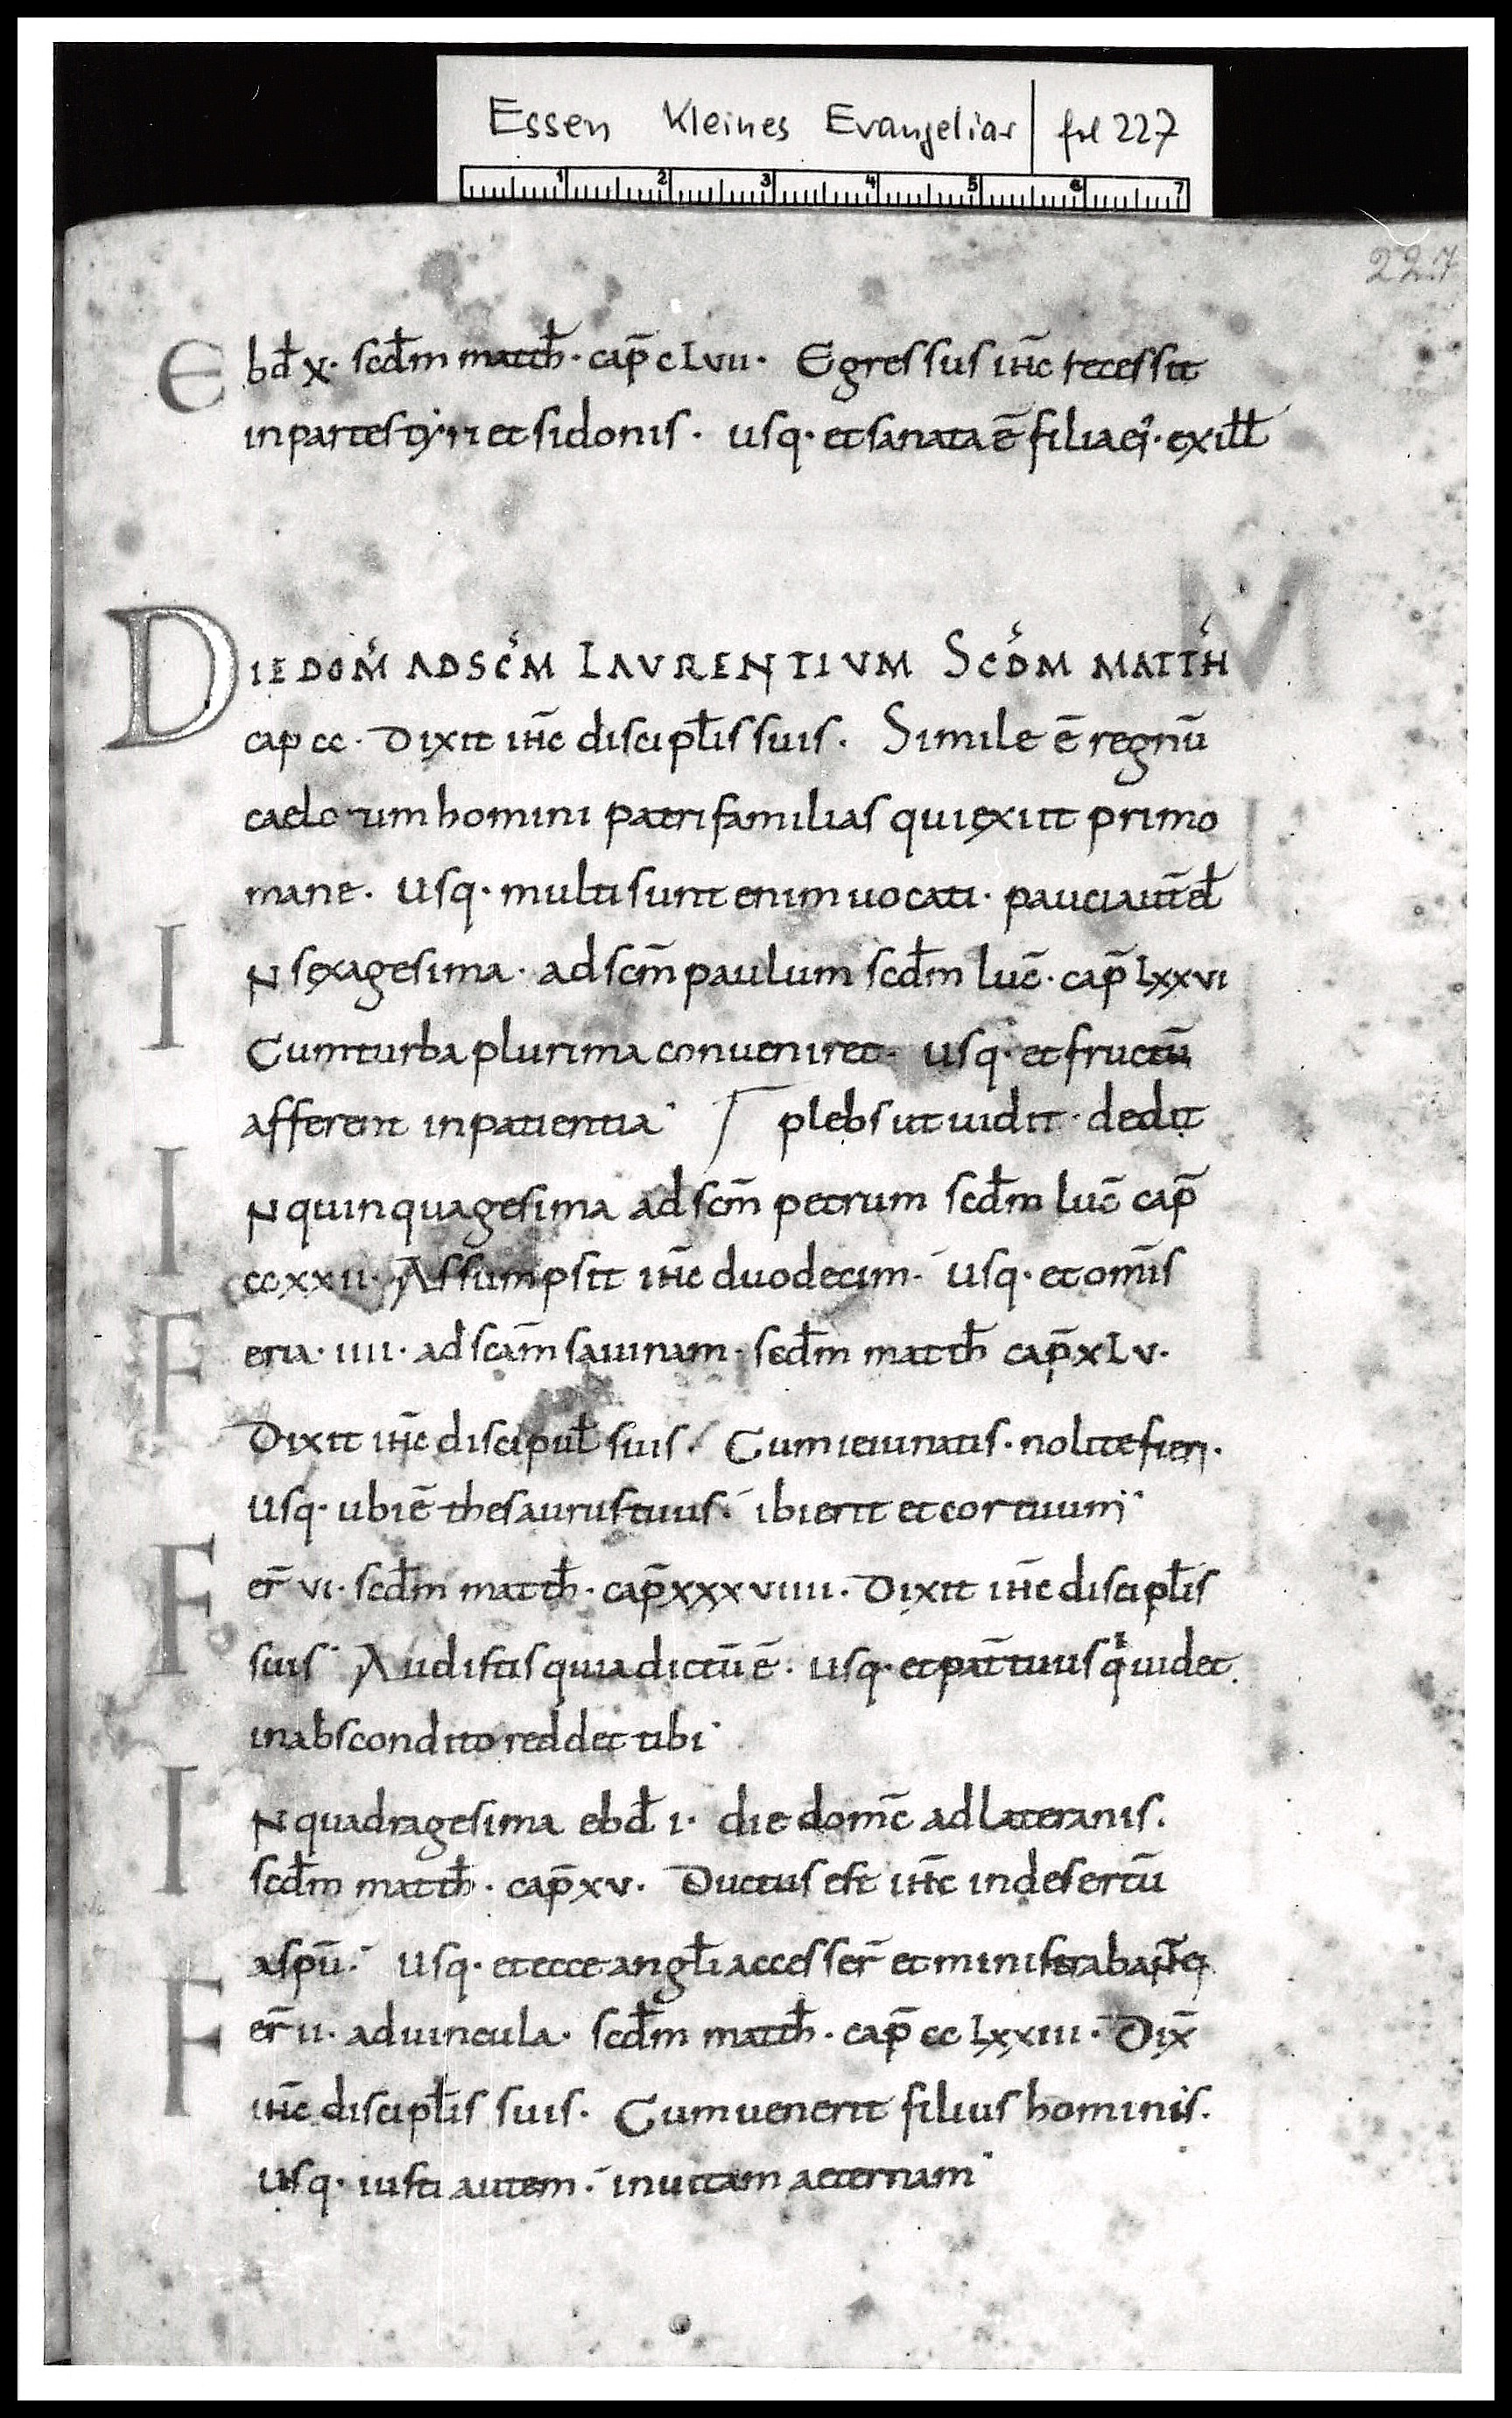 Essen Kleines Evangeliar | fol 227
1 2 3 4 5 6 7
227
Ebd̄ x· scd̄m matth̄· cap̄ clvii· Egressus ih̄c secessit
in partes tyri et sidonis· usq· et sanata ē filia ei᾽· ex ill̄
DIE DOM̄ AD SC̄M LAVRENTIVM SCD̄M MATTH̄
cap cc· Dixit ih̄c discipl̄is suis· Simile ē regnū
caelorum homini patri familias qui exiit primo
mane· usq· multi sunt enim uocati· pauci aut̄ el̄
IN sexagesima· ad scm̄ paulum scd̄m luc̄· cap̄ lxxvi
Cum turba plurima conueniret· usq· et fructū
afferent in patientia· plebs ut uidit· dedit
IN quinquagesima ad scm̄ petrum scd̄m luc̄ cap̄
ccxxii· Assumpsit ih̄c duodecim· usq· et om̄is
Feria· iiii· ad scam̄ sauinam· scd̄m matth̄ cap̄ xlv·
Dixit ih̄c discipul̄ suis· Cum ieiunatis· nolite fieri·
usq· ubi ē thesaurus tuus· ibi erit et cor tuum·
Fer̄ vi· scd̄m matth̄· cap̄ xxxviiii· Dixit ih̄c discipl̄is
suis· Audistis quia dictū ē· usq· et pat̄ tuus qͥ uidet
in abscondito reddet tibi·
IN quadragesima ebd̄ i· die domc̄ ad lateranis·
scd̄m matth̄· cap̄ xv· Ductus est ih̄c in desertū
a spū· usq· et ecce angl̄i accesser̄ et ministrabant ei
Fer̄ ii· ad uincula· scd̄m matth̄· cap̄ cclxxiii· Dix̄
ih̄c discipl̄is suis· Cum uenerit filius hominis·
usq· iusti autem· in uitam aeternam·